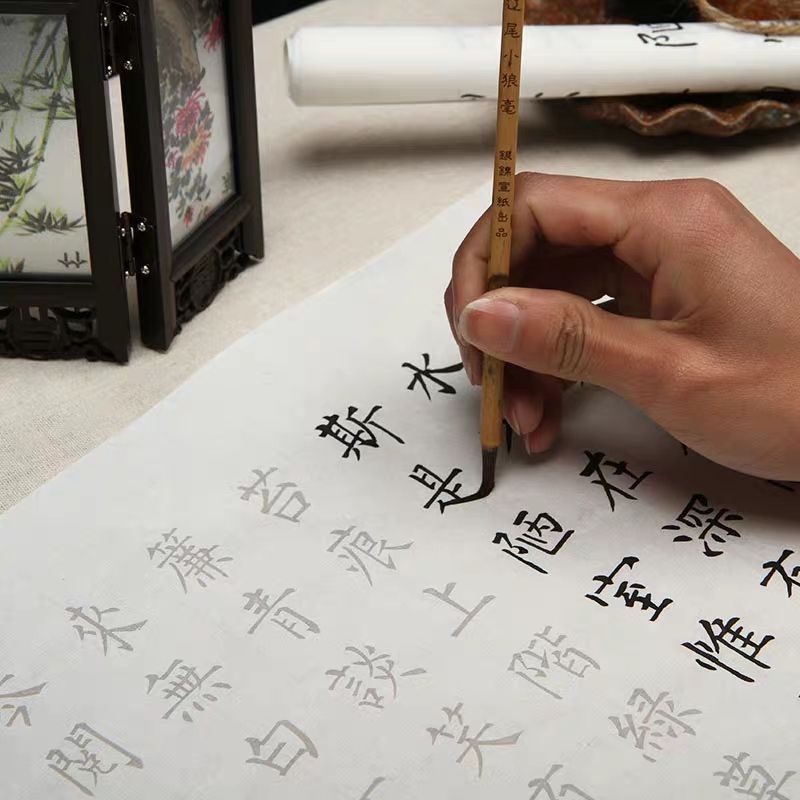 尾小狼毫
宣紙出品
陋
水在深有
斯是陋室惟
苔痕上階綠草
簾青談笑有
來無白
閱